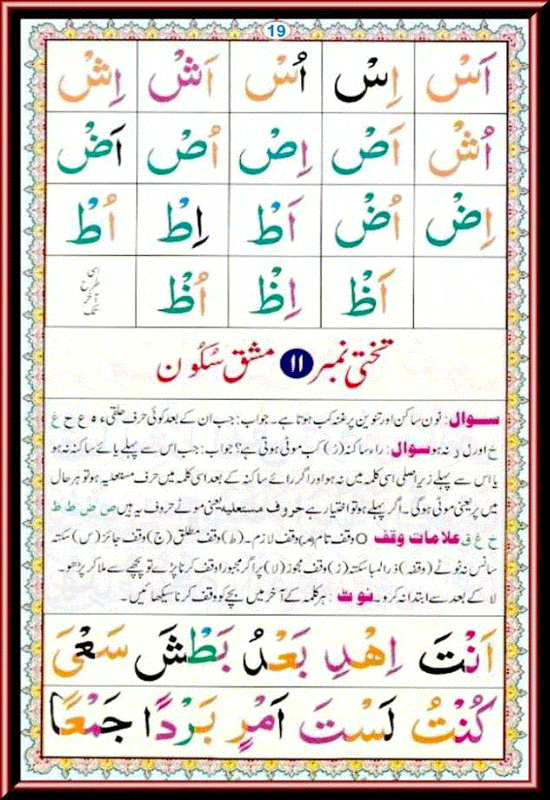 19
اَسْ اِسْ اُسْ اَشْ اِشْ
اُشْ اَصْ اِصْ اُصْ اَضْ
اِضْ اُضْ اَطْ اِطْ اُطْ
اَظْ اِظْ اُظْ اسی طرح آخر تک
تختی نمبر ۱۱ مشق سُکُون
سوال: نون ساکن اور تنوین پر غنہ کب ہوتا ہے۔ جواب: جب ان کے بعد کوئی حرف حلقی ء ہ ع ح غ
خ اور ل ر نہ ہو سوال: راء ساکنہ (رْ) کب موٹی ہوتی ہے؟ جواب: جب اس سے پہلے یائے ساکنہ نہ ہو
یا اس سے پہلے زیر اصلی اسی کلمہ میں نہ ہو اور اگر رائے ساکنہ کے بعد اسی کلمہ میں حرف مستعلیہ ہو تو ہر حال
میں پُر یعنی موٹی ہوگی۔ اگر پہلے ہو تو اختیار ہے حروف مستعلیہ یعنی موٹے حروف یہ ہیں ص ض ط ظ
خ غ ق علامات وقف O وقف تام (م) وقف لازم۔ (ط) وقف مطلق (ج) وقف جائز (س) سکتہ
سانس نہ ٹوٹے (وقفہ) ذرا لمبا سکتہ (ز) وقف مجوز (لا) پر اگر مجبورا وقف کرنا پڑے تو پیچھے سے ملا کر پڑھو۔
لا کے بعد سے ابتدا نہ کرو۔ نوٹ: ہر کلمہ کے آخر میں بچے کو وقف کرنا سیکھائیں۔
اَنْتَ اِهْدِ بَعْدُ بَطْشَ سَعْیَ
كُنْتُ لَسْتَ اَمْرٍ بَرْدًا جَمْعًا